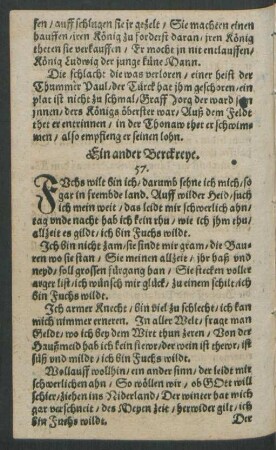 sen / auff schlugen sie jr gezelt / Sie machten einen
hauffen / jren König zu forderst daran / jren König
theten sie verkauffen / Er mocht jn nit entlauffen /
König Ludwig der junge küne Mann.
Die schlacht die was verloren / einer heist der
Thummer Paul / der Türck hat jhm geschoren / ein
plat ist nicht zu schmal / Graff Jörg der ward jen
jnnen / ders Königs öberster war / Auß dem Feldt
thet er entrinnen / in der Thonaw thet er schwim-
men / also empfieng er seinen lohn.
Ein ander Berckreye.
57.
FUchs wilt bin ich / darumb sehne ich mich / so
gar in frembde land. Auff wilder Heid / such
ich mein weit / das leidt mir schwerlich ahn /
tag vnde nacht hab ich kein rhu / wie ich jhm thu /
allzeit es gildt / ich bin Fuchs wildt.
Ich bin nicht zam / sie sinde mir gram / die Bau-
ren wo sie stan / Sie meinen allzeit / jhr haß vnd
neyd / soll grossen fürgang han / Sie stecken voller
arger list / ich wünsch mir glück / zu einem schilt / ich
bin Fuchs wildt.
Ich armer Knecht / bin viel zu schlecht / ich kan
mich nimmer erneren. In aller Welt / fragt man
Geldt / wo ich bey dem Wirt thun zeren / Von der
Haußmeid hab ich kein stewr / der wein ist thewr / ist
süß vnd mild / ich bin Fuchs wildt.
Wollauff wollhin / ein ander sinn / der leidt mir
schwerlichen ahn / So wöllen wir / ob GOtt will
schier / ziehen ins Niderland / Der winter hat mich
gar verschneit / des Meyen zeit / herwider gilt / ich
bin Fuchs wildt.
Der